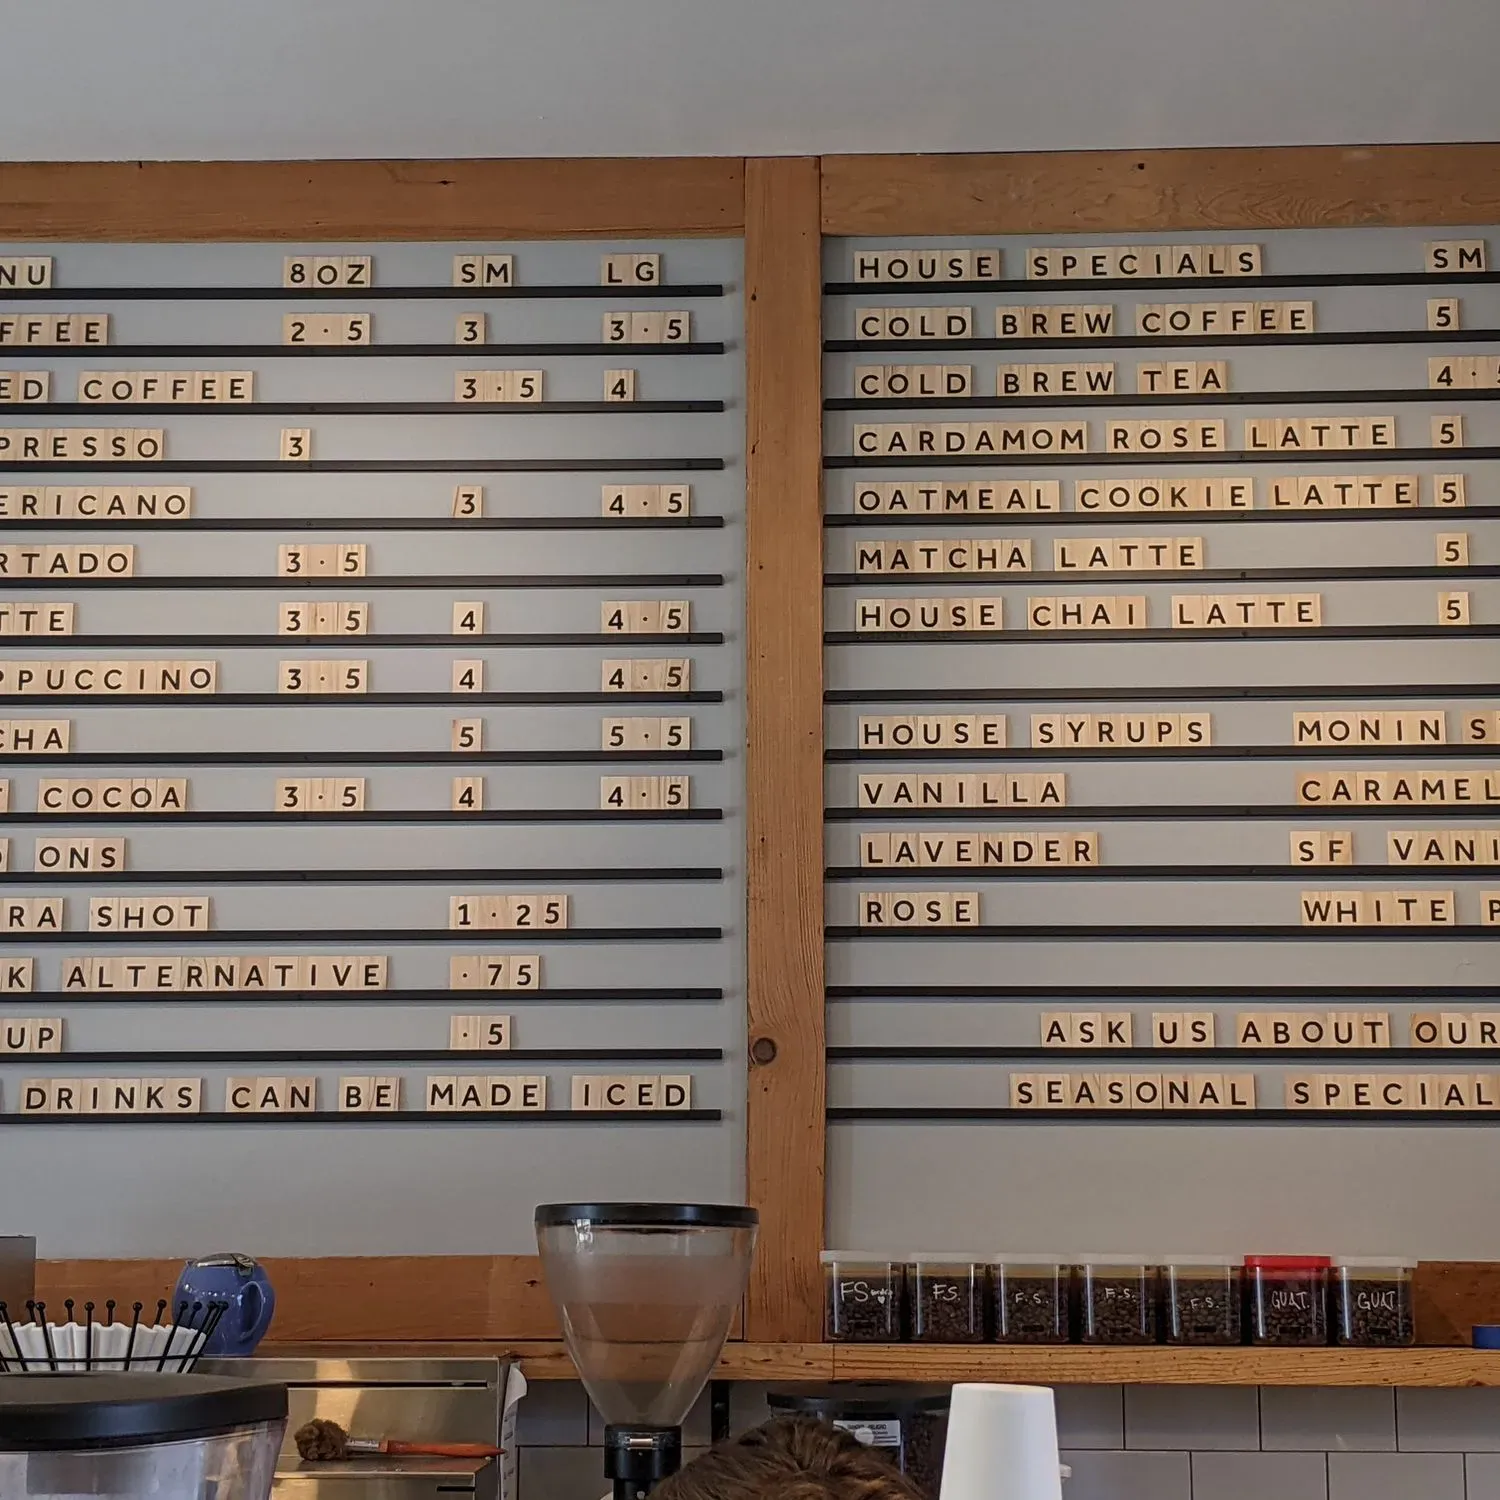 NU 8OZ SM LG
FFEE 2·5 3 3·5
ED COFFEE 3·5 4
PRESSO 3
ERICANO 3 4·5
RTADO 3·5
TTE 3·5 4 4·5
PPUCCINO 3·5 4 4·5
CHA 5 5·5
COCOA 3·5 4 4·5
ONS
RA SHOT 1·25
K ALTERNATIVE ·75
UP ·5
DRINKS CAN BE MADE ICED
HOUSE SPECIALS SM
COLD BREW COFFEE 5
COLD BREW TEA 4·
CARDAMOM ROSE LATTE 5
OATMEAL COOKIE LATTE 5
MATCHA LATTE 5
HOUSE CHAI LATTE 5
HOUSE SYRUPS MONIN S
VANILLA CARAMEL
LAVENDER SF VANI
ROSE WHITE P
ASK US ABOUT OUR
SEASONAL SPECIAL
FS
FS.
F.S.
F.S.
F.S.
GUAT.
GUAT.